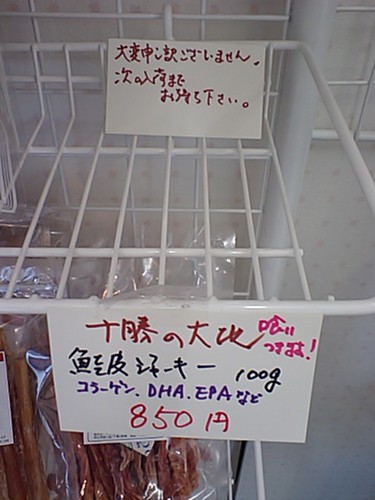 大変申し訳ございません。
次の入荷まで
お待ち下さい。
十勝の大地
喰い
つきます!
鮭皮ジャーキー 100g
コラーゲン、DHA、EPAなど
850円